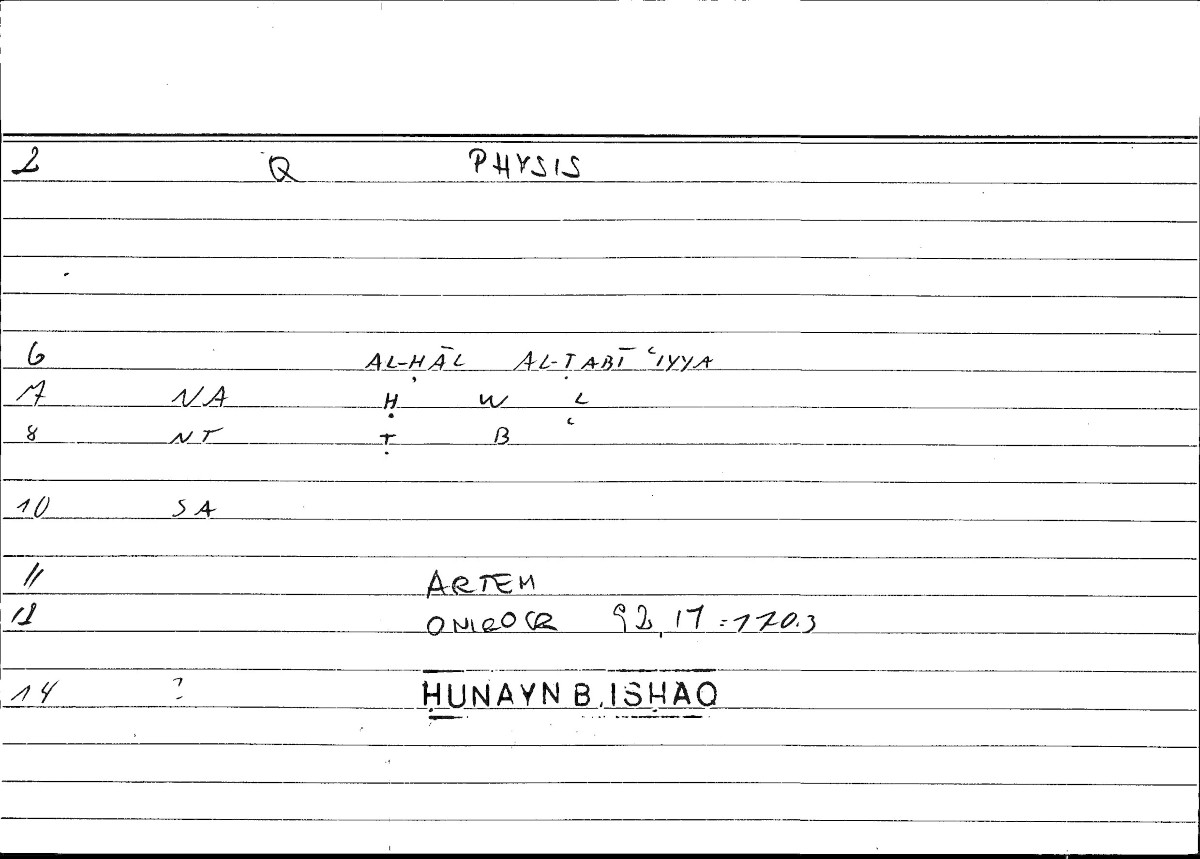 2 Q PHYSIS
6 AL-ḤĀL AL-ṬABĪʿIYYA
7 NA Ḥ W L
8 NT Ṭ B ʿ
10 SA
11 ARTEM
12 ONIROCR 92,17=170.3
14 ? ḤUNAYN B. ISḤAQ